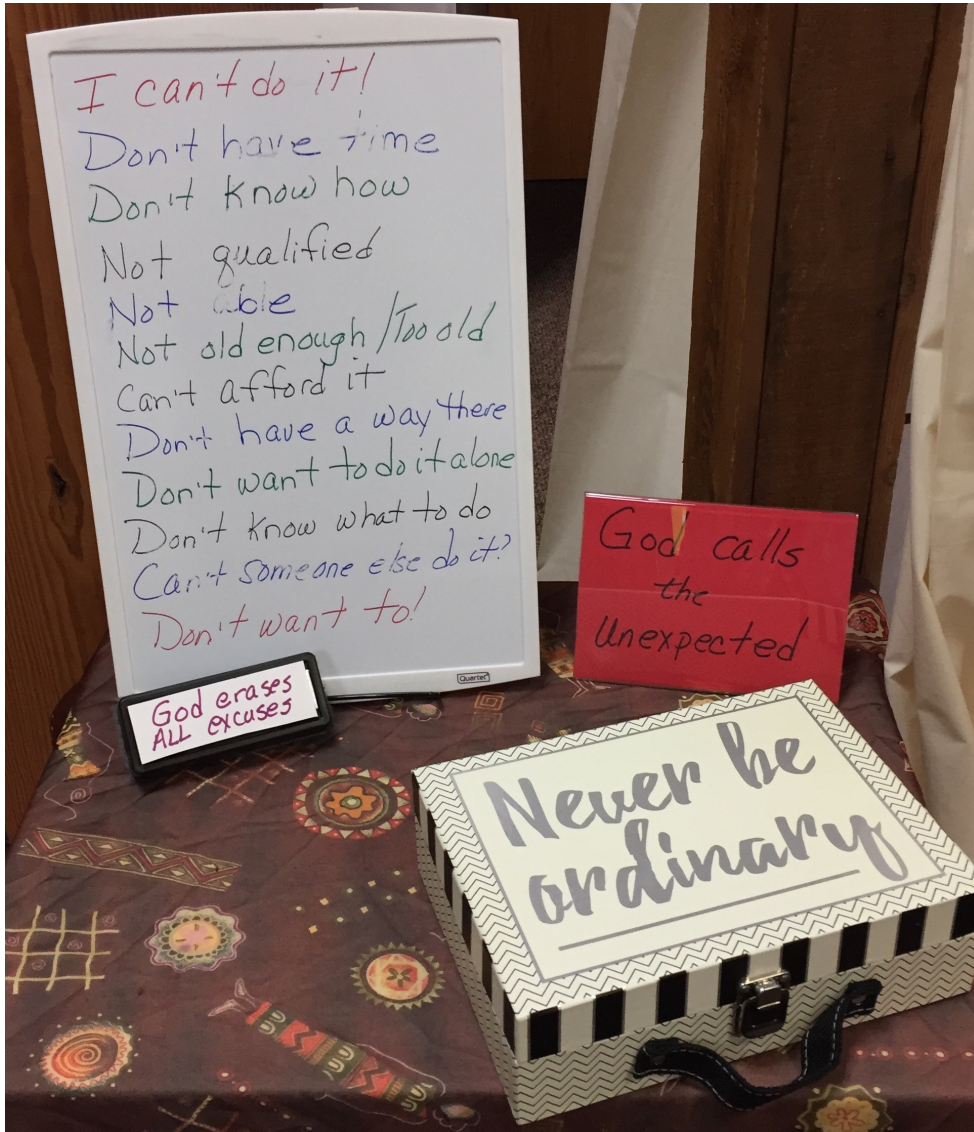 I can't do it!
Don't have time
Don't know how
Not qualified
Not able
Not old enough / Too old
Can't afford it
Don't have a way there
Don't want to do it alone
Don't know what to do
Can't someone else do it?
Don't want to!
Quartet
God erases
ALL excuses
God calls
the
Unexpected
Never be
ordinary